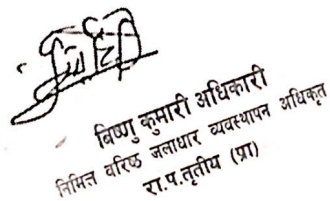 बिष्णु कुमारी अधिकारी
निमित्त वरिष्ठ जलाधार व्यवस्थापन अधिकृत
रा.प.तृतीय (प्रा)